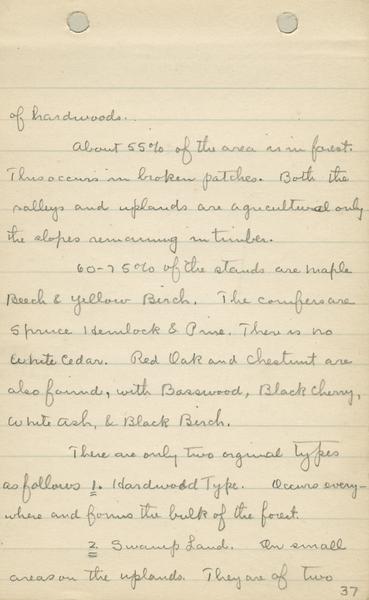 of hardwoods.
About 55% of the area is in forest.
This occurs in broken patches. Both the
valleys and uplands are agricultural only
the slopes remaining in timber.
60-75% of the stands are maple
Beech & Yellow Birch. The conifers are
Spruce Hemlock & Pine. There is no
White Cedar. Red Oak and Chestnut are
also found, with Basswood, Black Cherry,
White Ash, & Black Birch.
There are only two orginal types
as follows 1. Hardwood Type. Occurs every-
where and forms the bulk of the forest.
2. Swamp Land. On small
areas on the uplands. They are of two
37